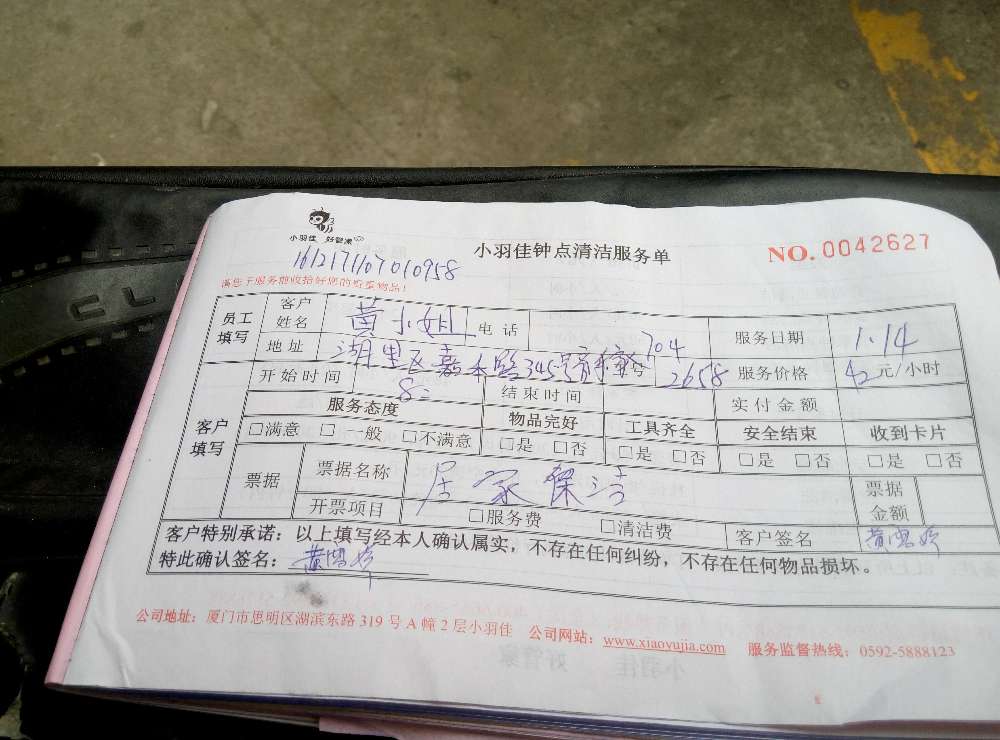 小羽佳 好管家
小羽佳钟点清洁服务单
NO. 0042627
1612171107010958
请您于服务前收拾好您的贵重物品!
员工填写 客户姓名 黄小姐 电话 服务日期 1.14
地址 湖里区嘉禾路345号 704 2658 服务价格 42元/小时
客户填写 开始时间 8: 结束时间 实付金额
服务态度 物品完好 工具齐全 安全结束 收到卡片
□满意 □一般 □不满意 □是 □否 □是 □否 □是 □否 □是 □否
票据 票据名称 居家保洁 票据金额
开票项目 □服务费 □清洁费 客户签名
客户特别承诺:以上填写经本人确认属实,不存在任何纠纷,不存在任何物品损坏。
特此确认签名:
公司地址:厦门市思明区湖滨东路 319 号 A 幢 2 层小羽佳 公司网站:www.xiaoyujia.com 服务监督热线:0592-5888123